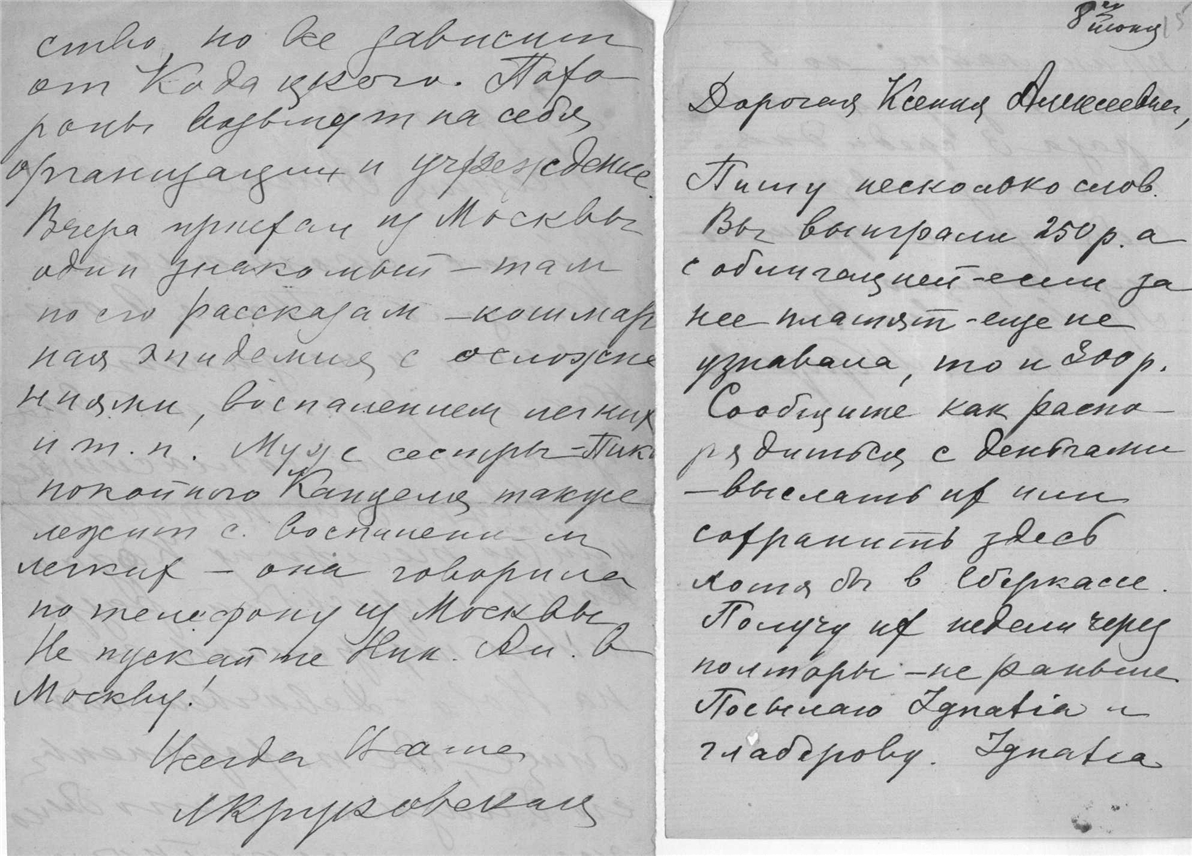 ство, но все зависит
от Кодацкого. Похо
роны возьмут на себя
организации и учреждение.
Вчера приехал из Москвы
один знакомый – там
по его рассказам – кошмар
ная эпидемия с осложне
ниями, воспалением легких
и т. п. Муж сестры –
покойного также
лежит с воспалени-м
легких – она говорила
по телефону из Москвы
Не пускайте Ник. Ал. в
Москву!
Всегда Ваша
Круковская
8го июня 15
Дорогая Ксения Алексеевна,
Пишу несколько слов.
Вы выиграли 250 р. а
с облигацией – если за
нее платят – еще не
узнавала, то и 300 р.
Сообщите как распо-
рядиться с деньгами
– выслать их или
сохранить здесь
хотя бы в Сберкассе.
Получу их недели через
полторы – не раньше
Посылаю Ignatia и
глаберову. Ignatia